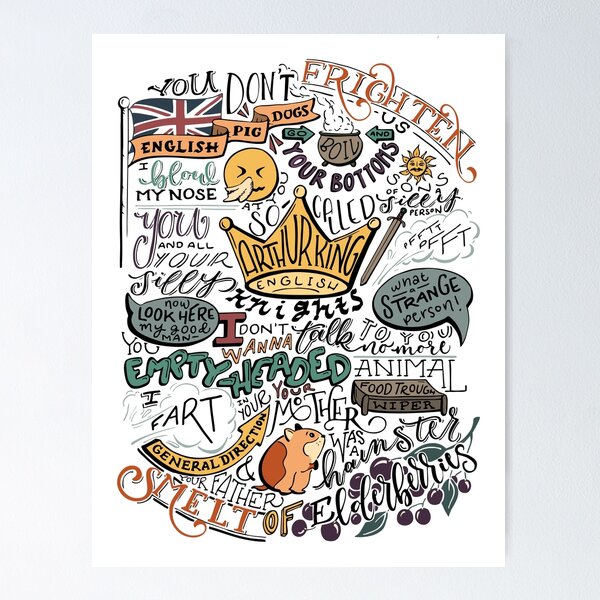 YOU DON'T FRIGHTEN
US
ENGLISH PIG DOGS
GO AND
BOIL
YOUR BOTTOMS
SONS
OF
Silly
PERSON
I blow
MY NOSE
AT YOU
SO-CALLED
ARTHUR KING
YOU
AND ALL
YOUR
Silly
ENGLISH
Knights
PFFTT
PFFT
now
LOOK HERE
my good
MAN
I DON'T
WANNA
talk
TO YOU
no more
what
a
STRANGE
person!
YOU
EMPTY-HEADED
ANIMAL
FOOD TROUGH
WIPER
I
FART
IN YOUR
GENERAL DIRECTION
YOUR
MOTHER
WAS
A
hamster
&
YOUR FATHER
SMELT OF Elderberries